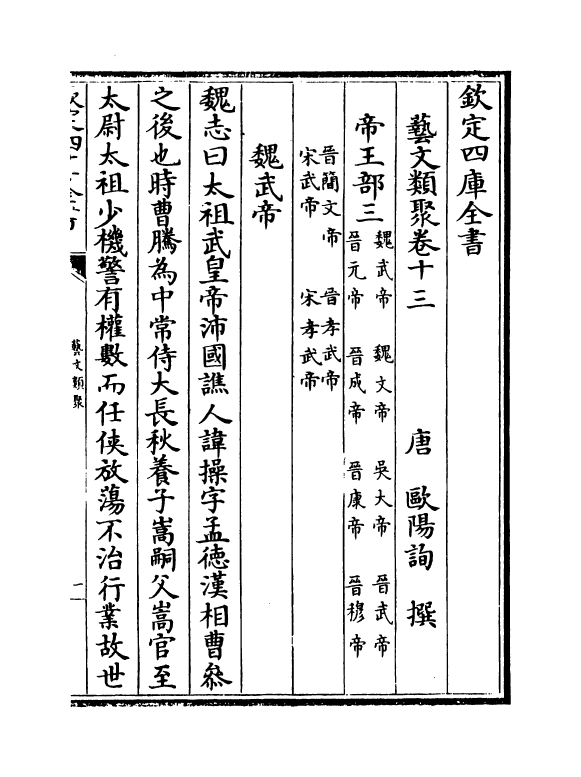 欽定四庫全書
藝文類聚卷十三
唐 歐陽詢 撰
帝王部三
魏武帝 魏文帝 吳大帝 晉武帝
晉元帝 晉成帝 晉康帝 晉穆帝
晉簡文帝 晉孝武帝
宋武帝 宋孝武帝
魏武帝
魏志曰太祖武皇帝沛國譙人諱操字孟徳漢相曹叅
之後也時曹騰為中常侍大長秋養子嵩嗣父嵩官至
太尉太祖少機警有權數而任俠放蕩不治行業故世
藝文類聚